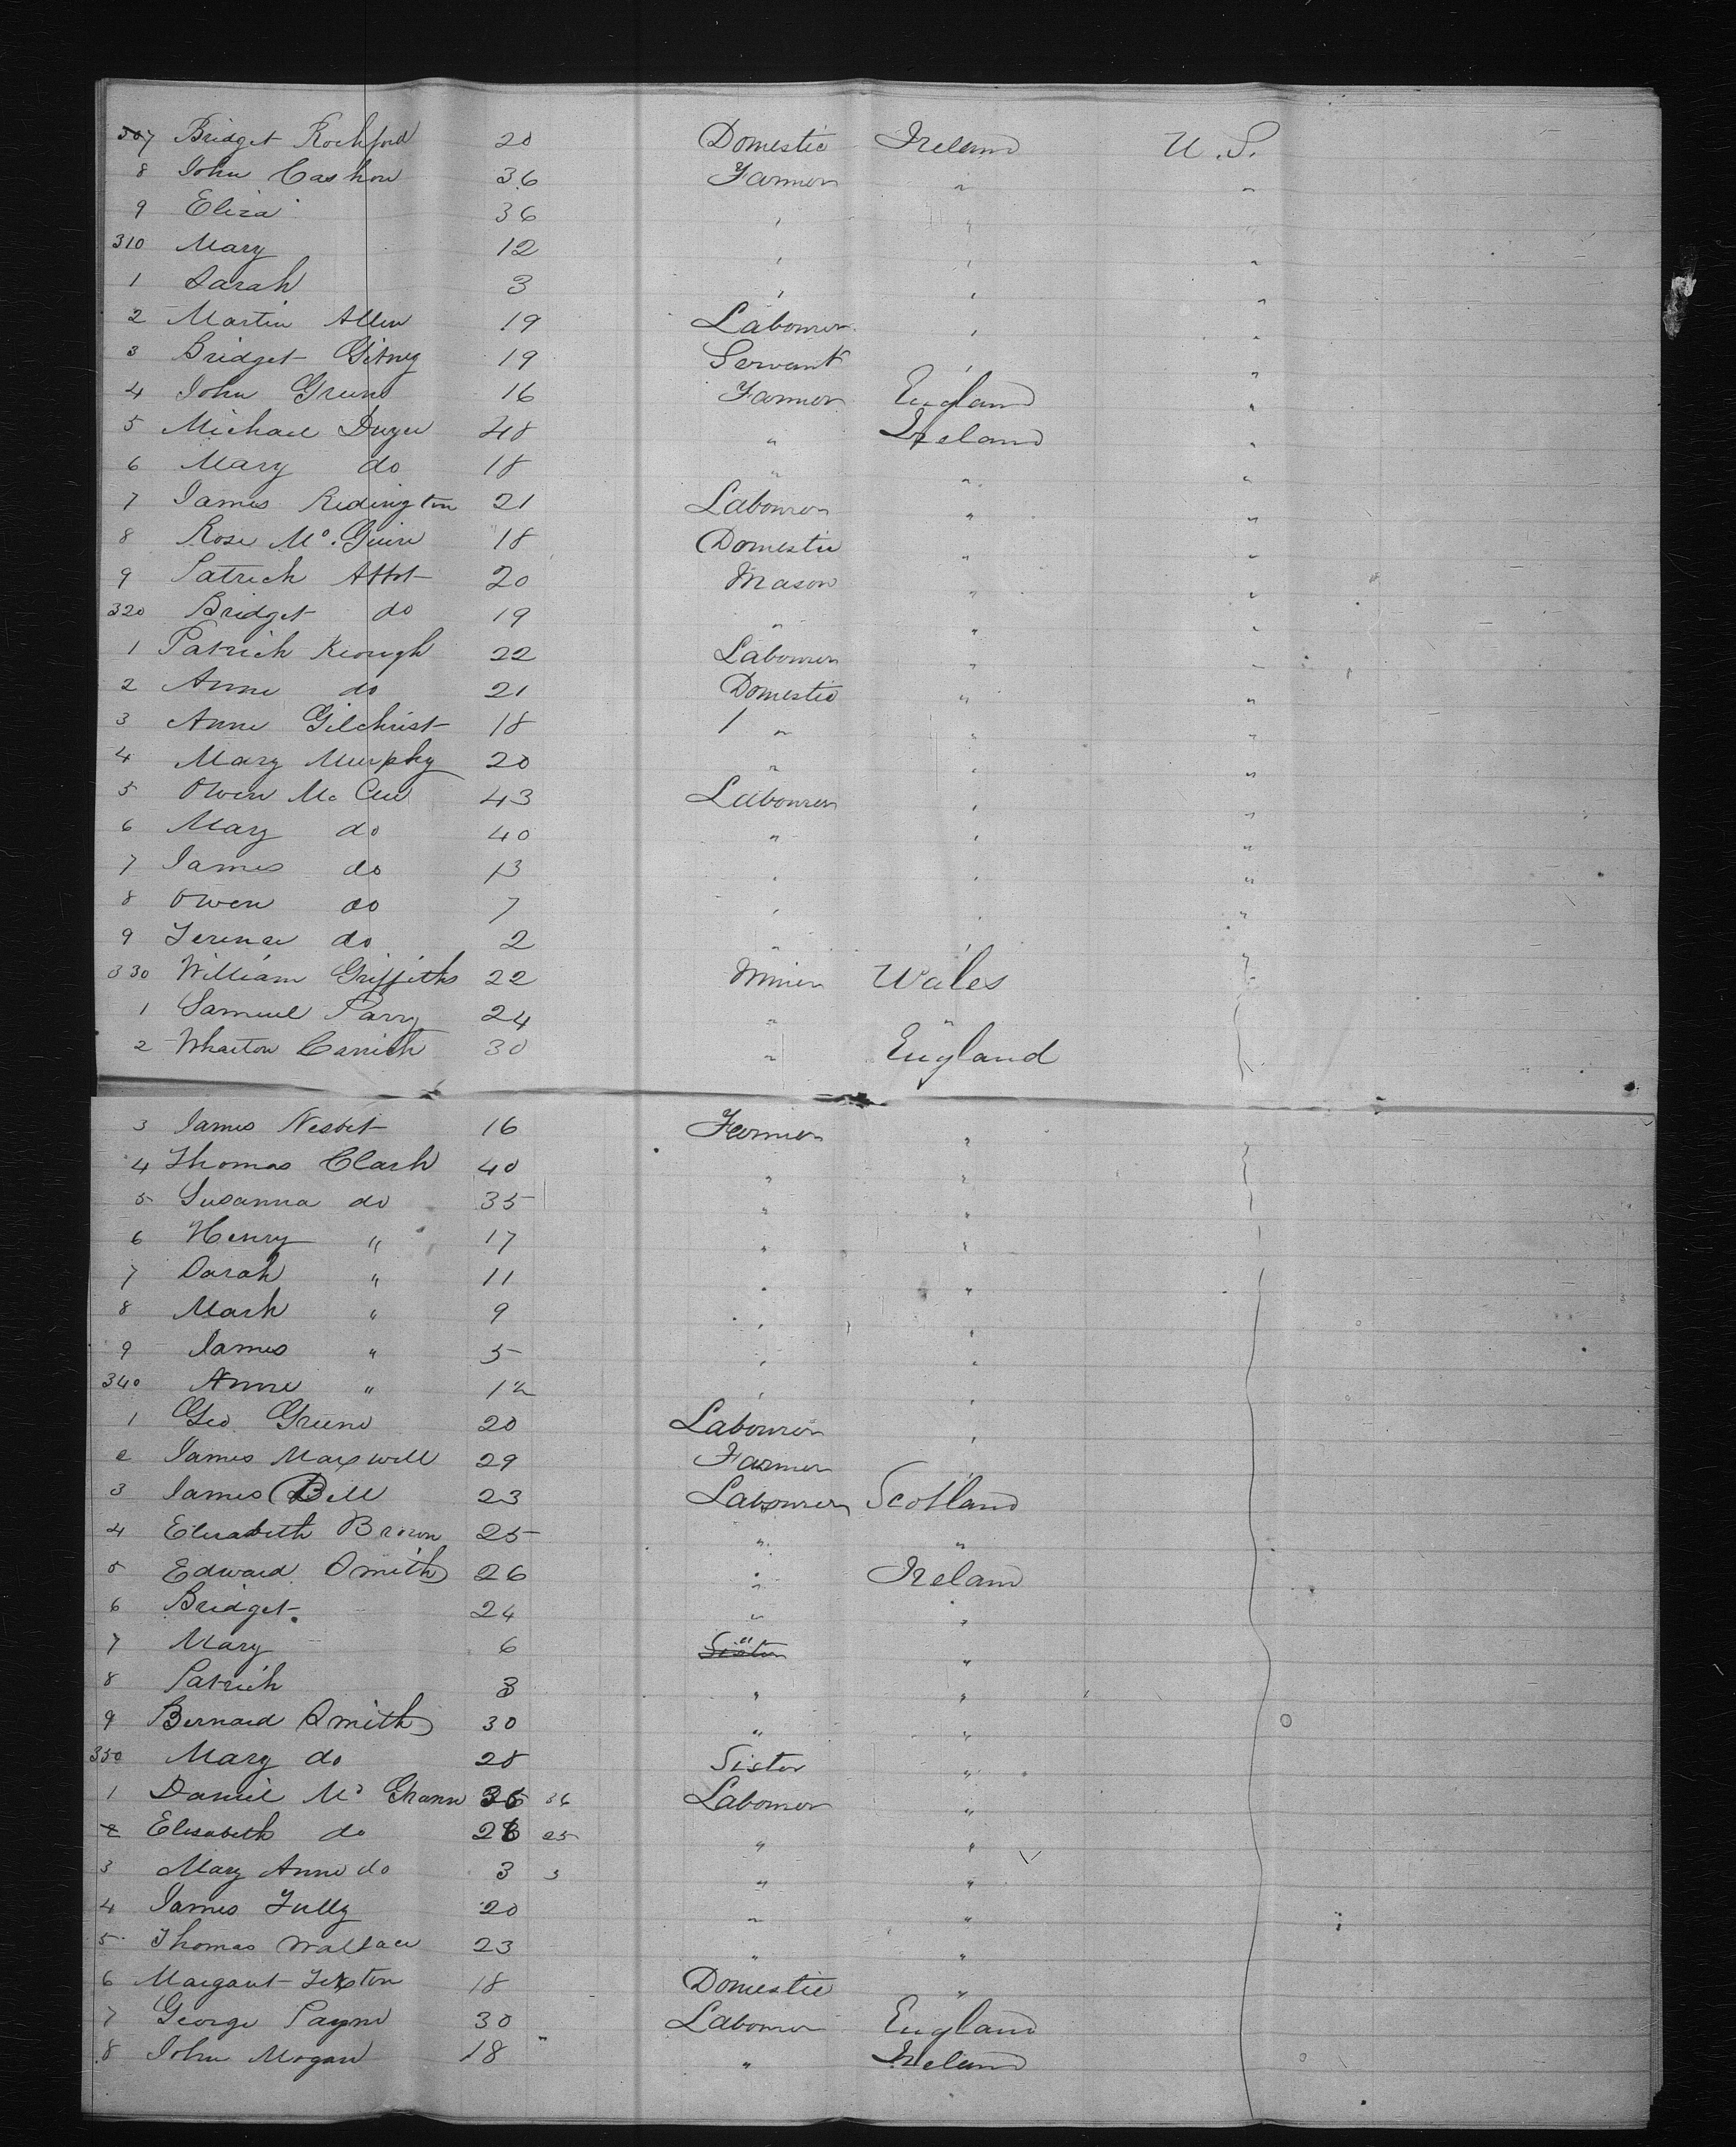 307 Bridget Rochford 20 Domestic Ireland U.S.
8 John Cashow 36 Farmer " "
9 Eliza 36 " " "
310 Mary 12 " " "
1 Sarah 3 " " "
2 Martin Allen 19 Labourer " "
3 Bridget 19 Servant " "
4 John Green 16 Farmer England "
5 Michael Dwyer 48 " Ireland "
6 Mary do 18 " " "
7 James Redington 21 Labourer " "
8 Rose McGuire 18 Domestic " "
9 Patrick Abbot 20 Mason " "
320 Bridget do 19 " " "
1 Patrick Keough 22 Labourer " "
2 Anne do 21 Domestic " "
3 Anne Gilchrist 18 " " "
4 Mary Murphy 20 " " "
5 Owen Mc Cue 43 Labourer " "
6 Mary do 40 " " "
7 James do 13 " " "
8 Owen do 7 " " "
9 Terence do 2 " " "
330 William Griffiths 22 Miner Wales "
1 Samuel Parry 24 " "
2 Wharton 30 " England
3 James Nesbet 16 Farmer "
4 Thomas Clark 40 " "
5 Susanna do 35 " "
6 Henry " 17 " "
7 Sarah " 11 " "
8 Mark " 9 " "
9 James " 5 " "
340 Anne " 12 " "
1 Geo Green 20 Labourer "
2 James Maxwell 29 Farmer "
3 James Bell 23 Labourer Scotland
4 Elizabeth Brown 25 " "
5 Edward Smith 26 " Ireland
6 Bridget 24 " "
7 Mary 6 Sister " "
8 Patrick 3 " "
9 Bernard Smith 30 " "
350 Mary do 28 Sister "
1 Daniel Mc Ghann 36 36 Labourer "
2 Elisabeth do 25 " "
3 Mary Anne do 3 3 " "
4 James Tully 20 " "
5 Thomas Wallace 23 " "
6 Margaret Sexton 18 Domestic "
7 George Payne 30 Labourer England
8 John Mogan 18 " Ireland